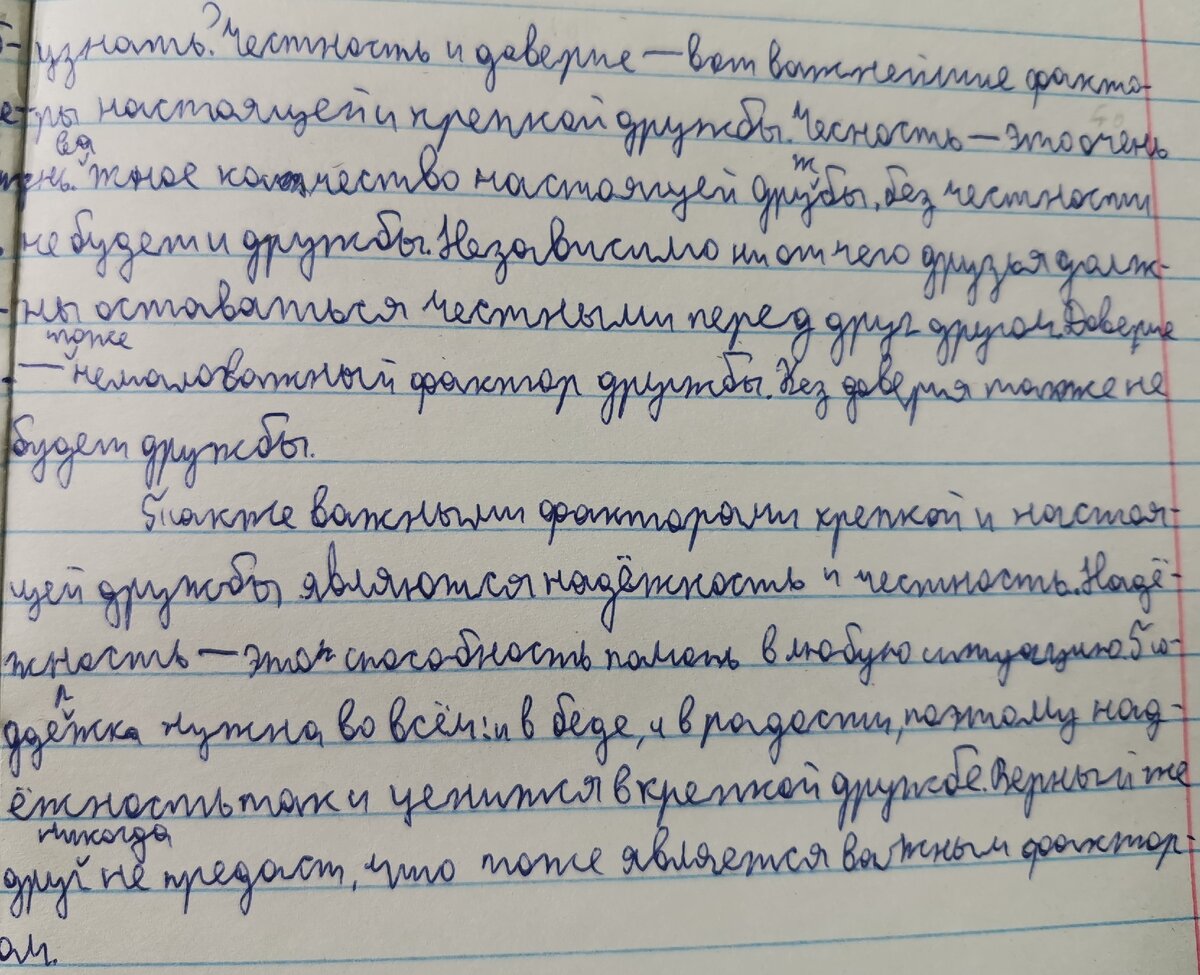 узнать? Честность и доверие — вот важнейшие факто-
ры настоящей и крепкой дружбы. Чесность — это очень
важное качество настоящей дружбы, без честности
не будет и дружбы. Независимо ни от чего друзья долж-
ны оставаться честными перед друг другом. Доверие
— тоже немаловажный фактор дружбы. Без доверия также не
будет дружбы.
Также важными факторами крепкой и настоя-
щей дружбы являются надёжность и честность. Надё-
жность — это способность помочь в любую ситуацию. По-
ддержка нужна во всём: и в беде, и в радости, поэтому над-
ёжность так и ценится в крепкой дружбе. Верный же
друг никогда не предаст, что тоже является важным фактор-
ом.